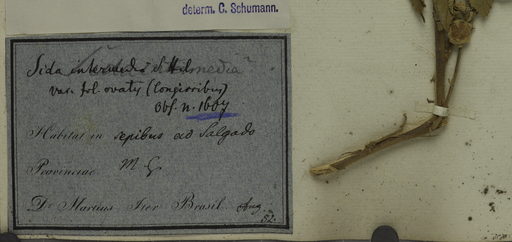 determ. C. Schumann.
Sida intermedia St Hil
var. fol. ovatis (longioribus)
Obs. n. 1607
Habitat in sepibus ad Salgado
Provinciae M. G.
Dr. Martius Iter Brasil. Aug